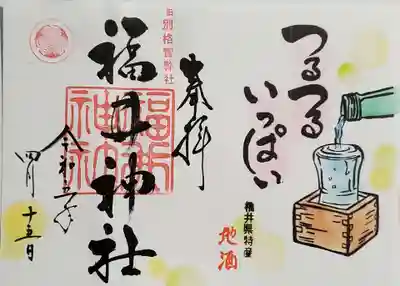 つるつる
いっぱい
福井県特産
地酒
奉拝
旧別格官幣社
福井神社
福井神社
令和五年
四月十五日